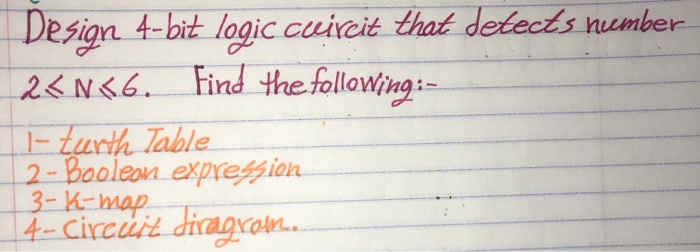 Design 4-bit logic cuircit that detects number
2≤N≤6. Find the following:-
1- turth Table
2- Boolean expression
3- K-map
4- Circuit diragram.